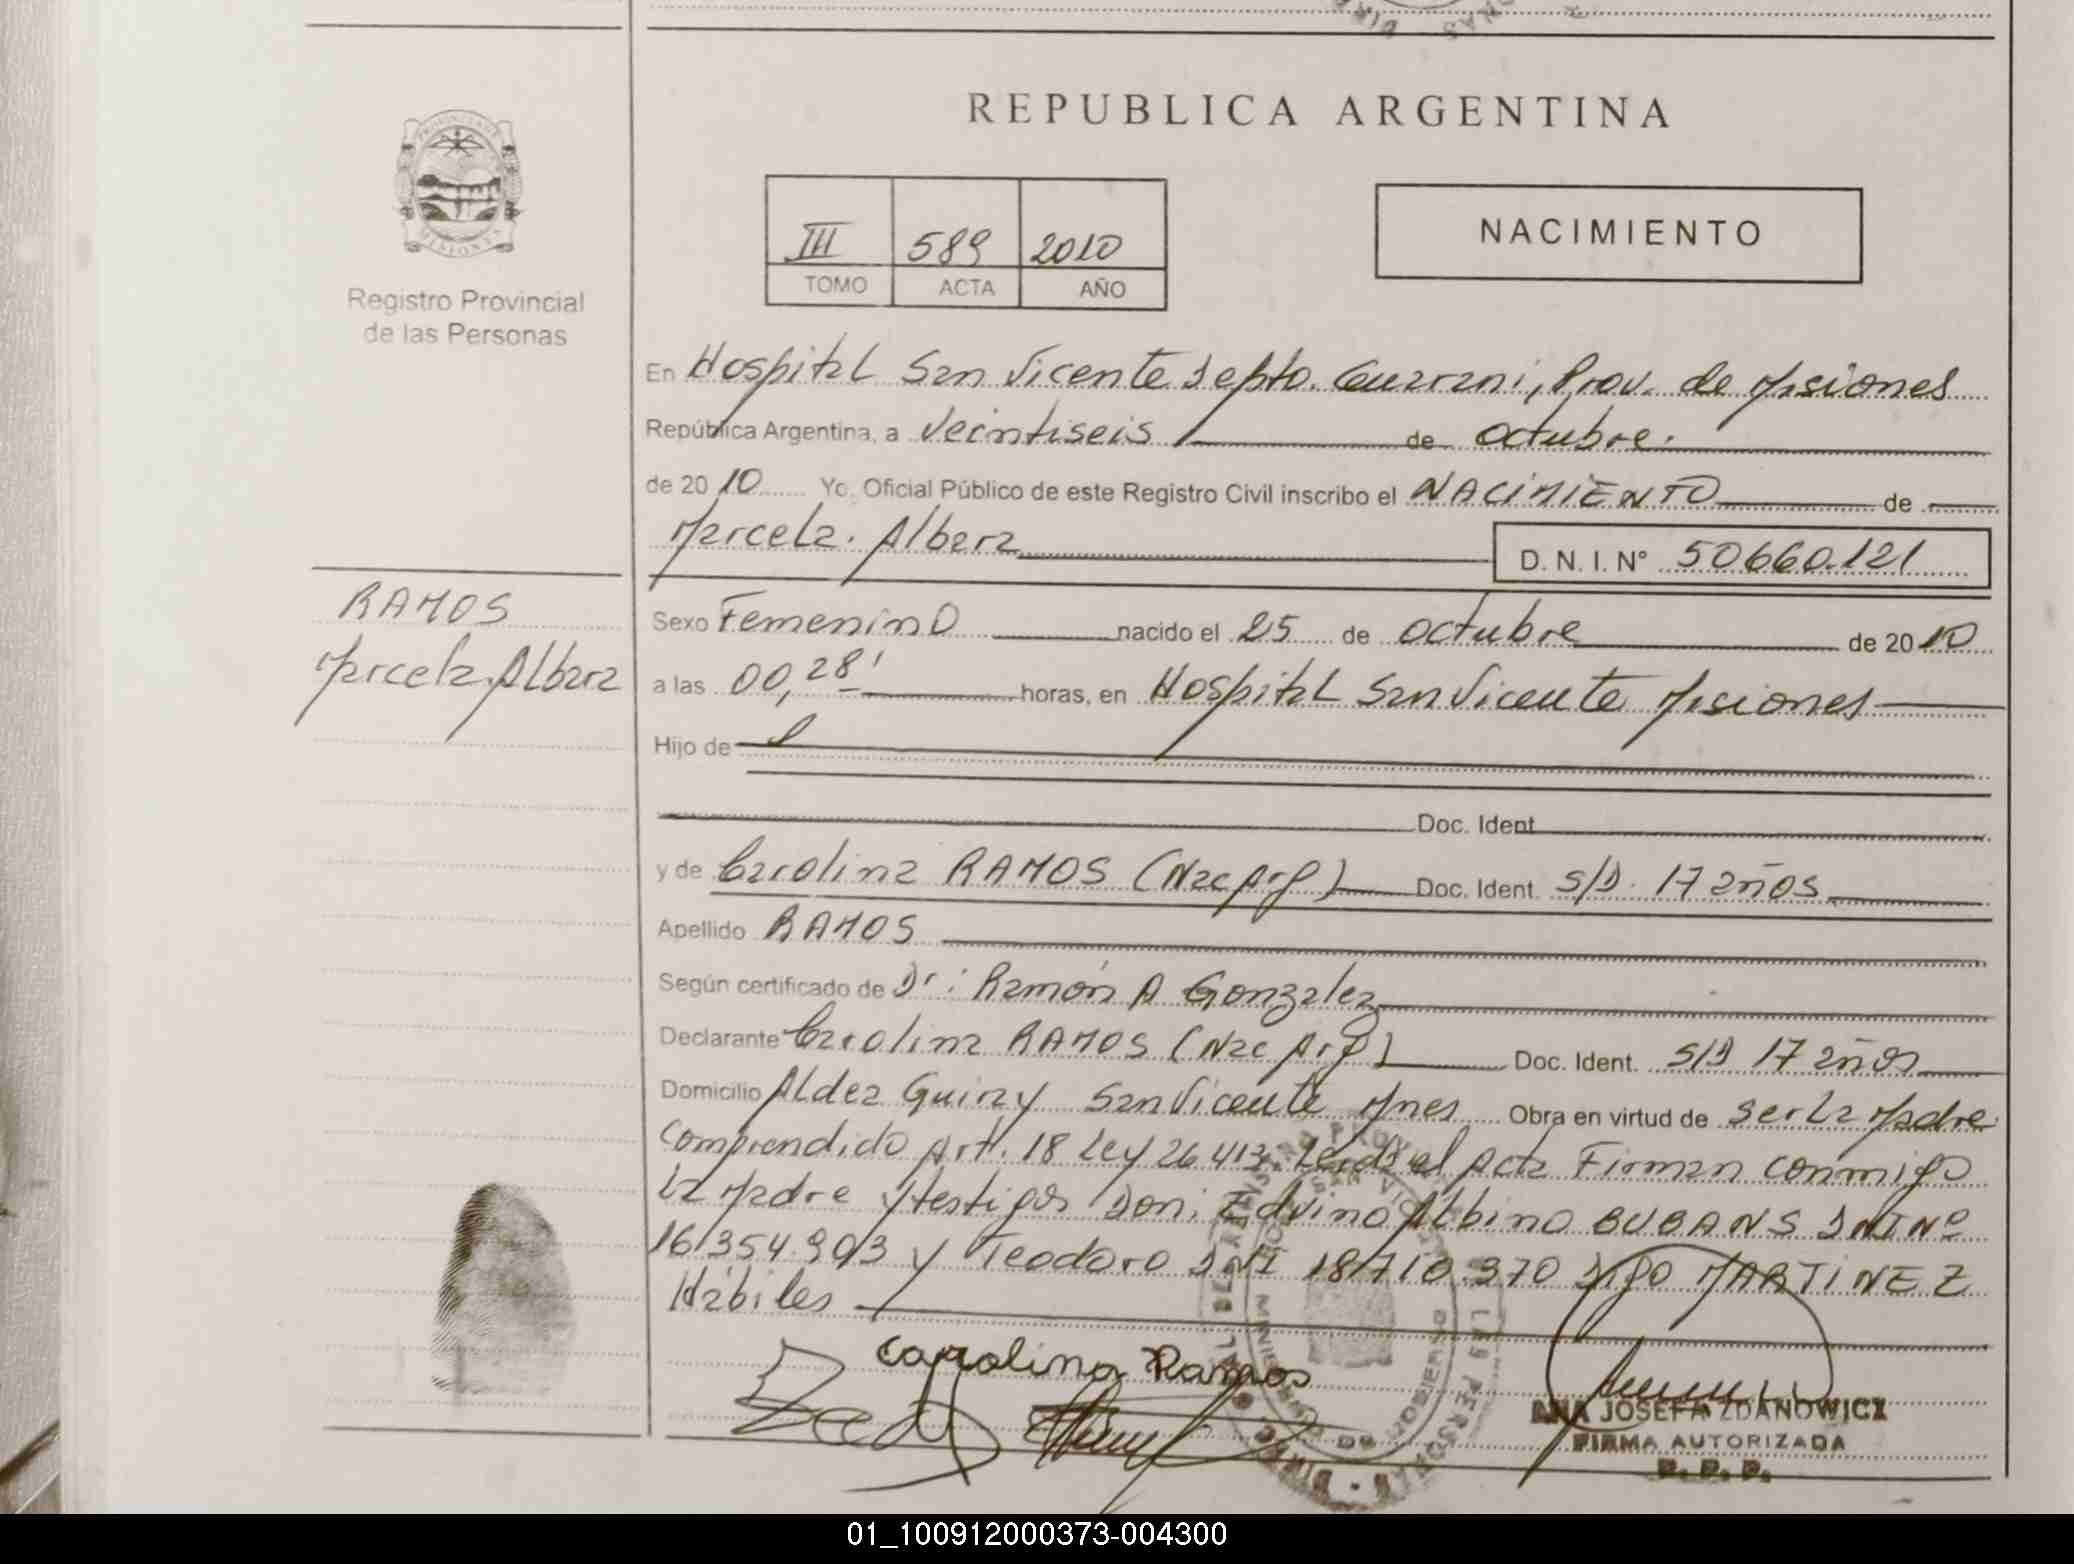 REPUBLICA ARGENTINA
PROVINCIA DE
MISIONES
Registro Provincial
de las Personas
III 589 2010
TOMO ACTA AÑO
NACIMIENTO
En Hospital San Vicente Depto. Guarani, Prov. de Misiones
República Argentina, a Veintiseis de octubre.
de 2010 Yo, Oficial Público de este Registro Civil inscribo el NACIMIENTO de
Marcela. Albara
D. N. I. N° 50660.121
RAMOS
Marcela. Albara
Sexo Femenino nacido el 25 de octubre de 2010
a las 00,28' horas, en Hospital San Vicente Misiones
Hijo de
Doc. Ident.
y de Carolina RAMOS (Nac Arg) Doc. Ident. S/D. 17 años
Apellido RAMOS
Según certificado de Dr: Ramón A Gonzalez
Declarante Carolina RAMOS (Nac Arg) Doc. Ident. S/D 17 años
Domicilio Aldea Guiray San Vicente Mnes Obra en virtud de ser la Madre
Comprendido Art. 18 Ley 26.413. Leida el Acta Firman conmigo
la Madre y testigos Don: Edvino Albino BUBANS DNI Nº
16.354.903 y Teodoro DNI 18.710.370 Digo MARTINEZ
Hábiles
Carolina Ramos
ANA JOSEFA ZDANOWICZ
FIRMA AUTORIZADA
R. P. P.
01_100912000373-004300